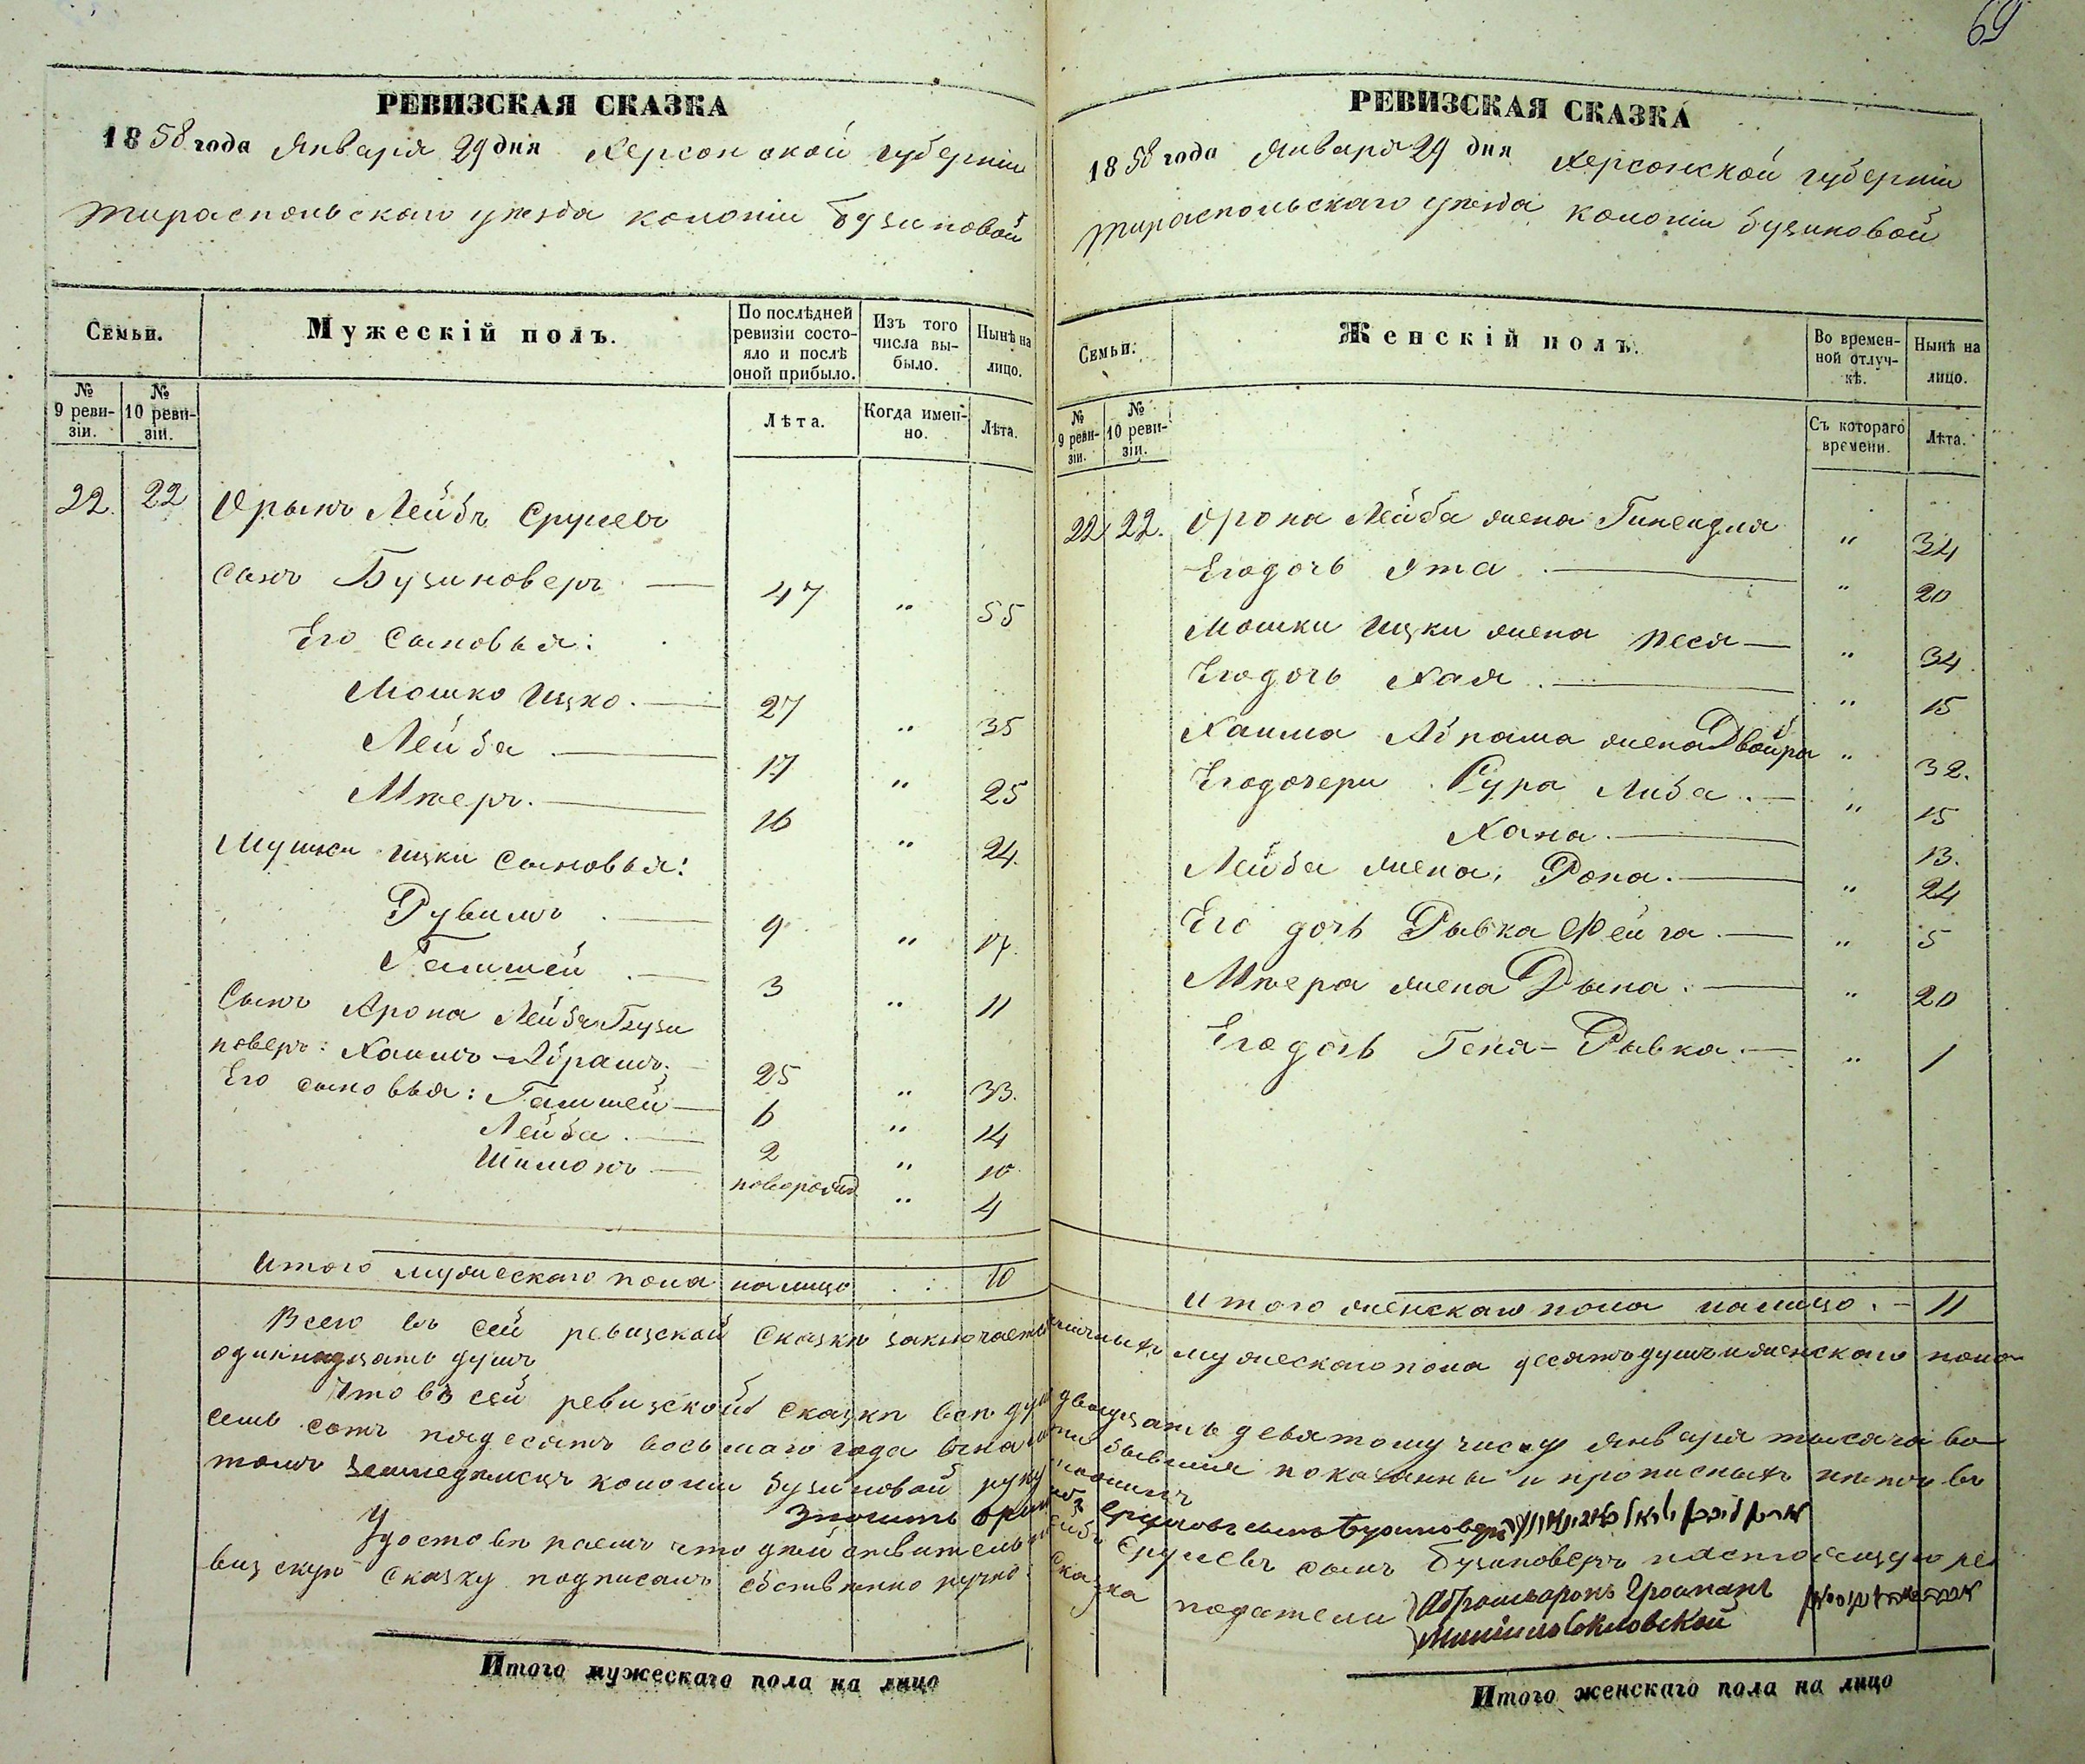 69
РЕВИЗСКАЯ СКАЗКА
1858 года Января 29 дня Херсонской губерніи
Тираспольскаго уѣзда колоніи Бузиновой
Семьи.
Мужескій полъ.
По послѣдней ревизіи состояло и послѣ оной прибыло.
Изъ того числа выбыло.
Нынѣ на лицо.
№ 9 ревизіи.
№ 10 ревизіи.
Лѣта.
Когда именно.
Лѣта.
22. 22 Орынъ Лейбъ Срулевъ
сынъ Бузиноверъ — 47 " 55
Его сыновья:
Мошко Ицко. — 27 " 35
Лейба — 17 " 25
Мѣеръ. — 16 " 24.
Мушки Ицки сыновья:
Рувимъ — 9 " 17.
Гамшей — 3 " 11
Сынъ Арона Лейбъ Бузи
новеръ: Хаимъ-Абрамъ. 25 " 33.
Его сыновья: Гамшей — 6 " 14
Лейба. — 2 " 10
Шимонъ — новорожд " 4
Итого мужескаго пола на лицо 10
РЕВИЗСКАЯ СКАЗКА
1858 года Января 29 дня Херсонской губерніи
Тираспольскаго уѣзда колоніи Бузиновой
Семьи.
Женскій полъ.
Во временной отлучкѣ.
Нынѣ на лицо.
№ 9 ревизіи.
№ 10 ревизіи.
Съ котораго времени.
Лѣта.
22 22. Орона Лейба жена Гинендля " 34
Его дочь Ята — " 20
Мошки Ицки жена Песя — " 34
Его дочь Хая — " 15
Хаима Абрама жена Двойра " 32.
Его дочери Сура Либа — " 15
Хана — 13.
Лейба жена, Рона. — " 24
Его дочь Рывка Фейга — " 5
Мѣера жена Дына. — " 20
Его дочь Геня-Рывка — " 1
Итого женскаго пола на лицо. — 11
Всего въ сей ревизской сказкѣ заключается наличныхъ мужескаго пола десять душъ и женскаго пола
одиннадцать душъ
Что въ сей ревизской сказкѣ всѣ двадцать девятому числу Января тысяча во
семь сотъ пядесятъ восьмаго года бывшія показанны и прописныхъ нѣтъ въ
томъ земледѣлецъ колоніи Бузиновой
Срулевъ сынъ Бузиноверъ
Удостовѣряемъ что дѣйствительно Срулевъ сынъ Бузиноверъ настоящую ре
визскую сказку подписалъ собственно ручно. Сказка податели
Абрамъ Аронъ Гройпанъ
Соколовской
Итого мужескаго пола на лицо
Итого женскаго пола на лицо